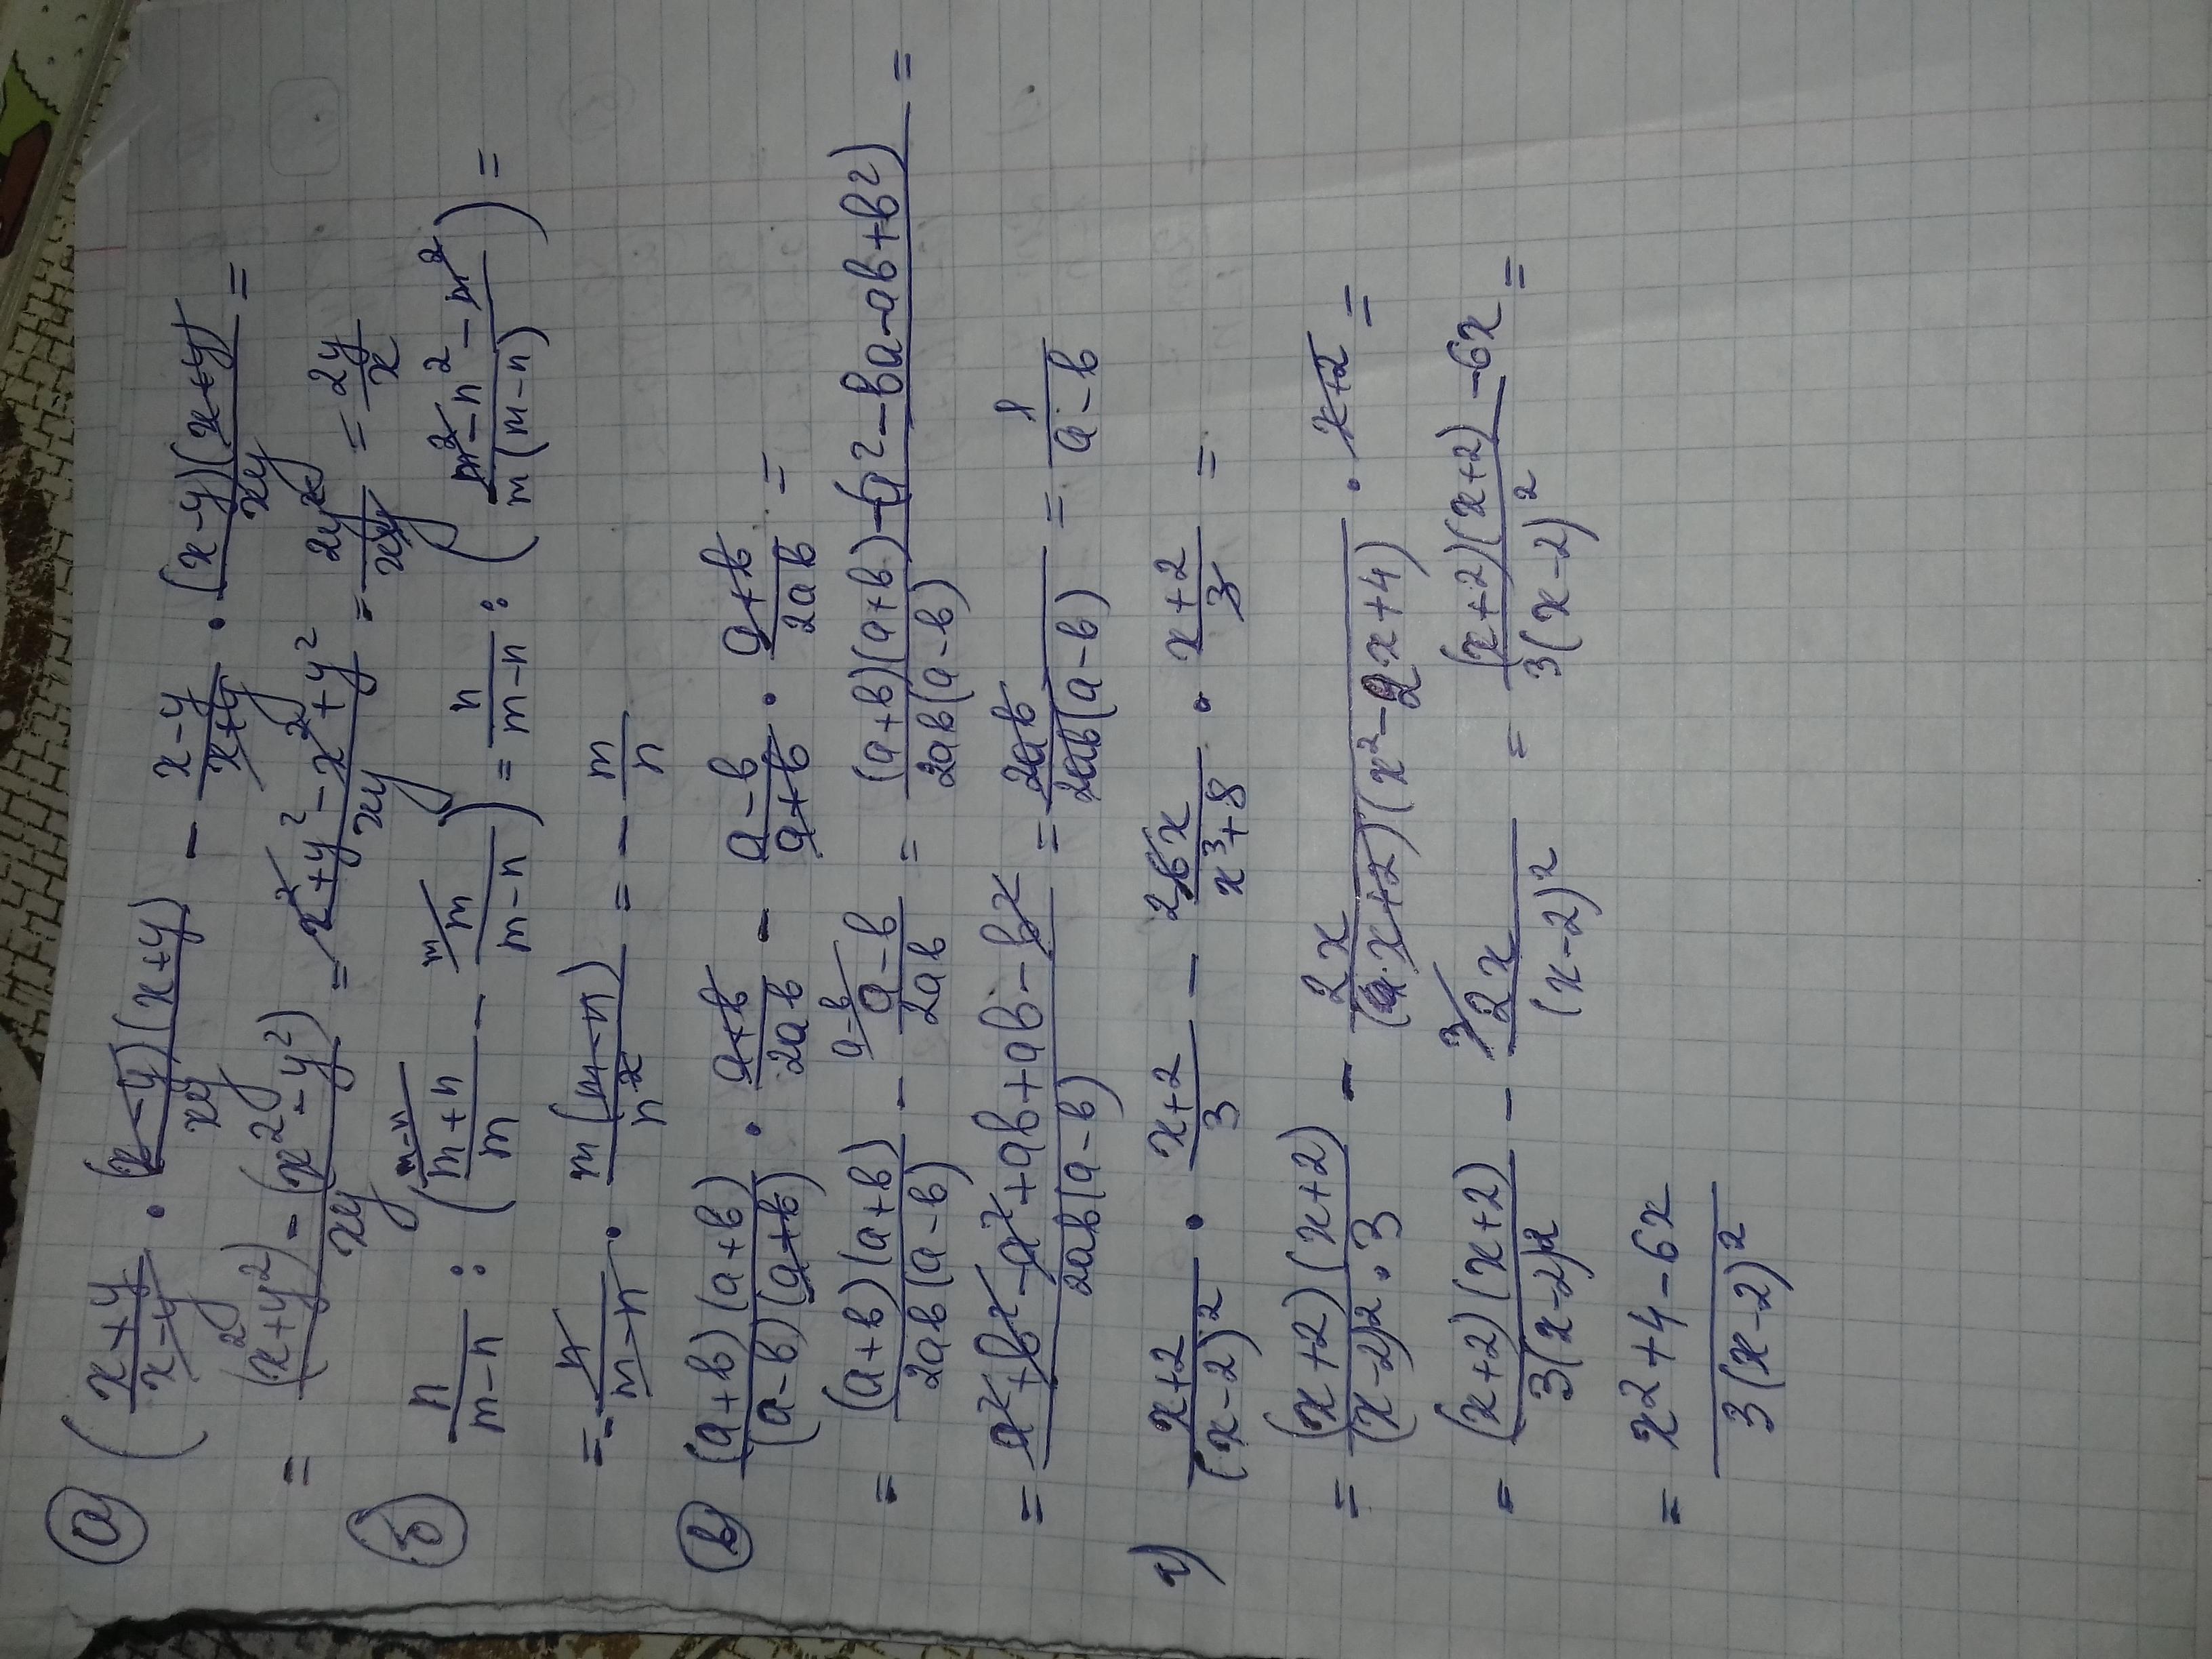 а) ( (x+y)/(x-y) · (x-y)(x+y)/xy - (x-y)/(x+y) · (x-y)(x+y)/xy =
= (x²+y²)-(x²-y²)/xy = x²+y²-x²+y²/xy = 2y²/xy = 2y/x
б) n/(m-n) : ( (m+n)/m - m/(m-n) ) = n/(m-n) : ( m²-n²-m²/m(m-n) ) =
= - n/(m-n) · m(m-n)/n² = - m/n
в) (a+b)(a+b)/(a-b)(a+b) · (a+b)/2ab - (a-b)/(a+b) · (a+b)/2ab =
= (a+b)(a+b)/2ab(a-b) - (a-b)/2ab = (a+b)(a+b)-(a²-ba-ab+b²)/2ab(a-b) =
= a²+b²-a²+ab+ab-b²/2ab(a-b) = 2ab/2ab(a-b) = 1/(a-b)
г) (x+2)/(x-2)² · (x+2)/3 - 6x/(x³+8) · (x+2)/3 =
= (x+2)(x+2)/(x-2)²·3 - 2x/(x+2)(x²-2x+4) · x+2 =
= (x+2)(x+2)/3(x-2)² - 2x/(x-2)² = (x+2)(x+2)-6x/3(x-2)² =
= x²+4-6x/3(x-2)²